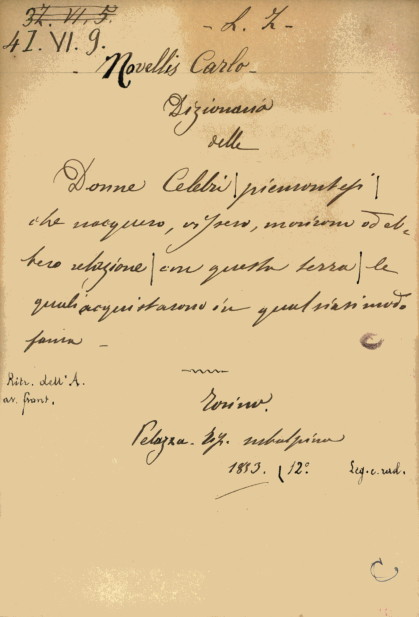 37. VI. 5.
- L. Z. -
41. VI. 9.
- Novellis Carlo -
Dizionario
delle
Donne Celebri | piemontesi |
che nacquero, vissero, morirono od eb-
bero relazione | con questa terra | le
quali acquistarono in qualsiasi modo
fama -
Ritr. dell'A.
av. front.
Torino.
Pelazza. Tip. subalpina
1853. 12º Leg. c. rad.
C